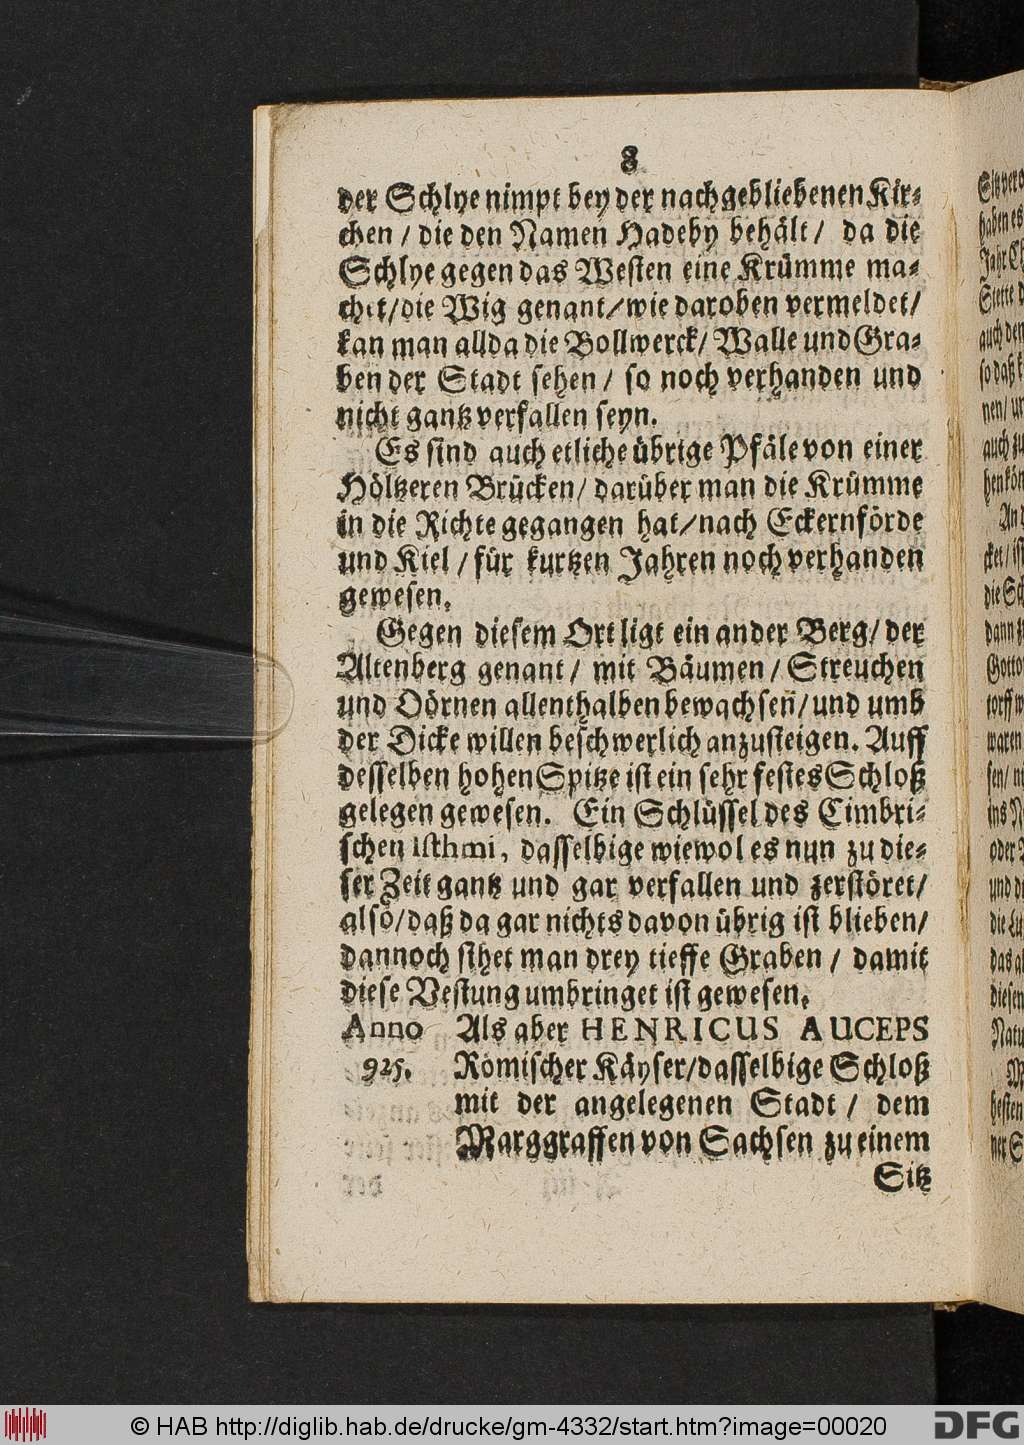 8
der Schlye nimpt bey der nachgebliebenen Kir-
chen / die den Namen Hadeby behält / da die
Schlye gegen das Westen eine Krümme ma-
chet / die Wig genant / wie daroben vermeldet /
kan man allda die Bollwerck / Walle und Gra-
ben der Stadt sehen / so noch verhanden und
nicht gantz verfallen seyn.
Es sind auch etliche übrige Pfäle von einer
Höltzeren Brücken / darüber man die Krümme
in die Richte gegangen hat / nach Eckernförde
und Kiel / für kurtzen Jahren noch verhanden
gewesen.
Gegen diesem Ort ligt ein ander Berg / der
Altenberg genant / mit Bäumen / Streuchen
und Dörnen allenthalben bewachsen / und umb
der Dicke willen beschwerlich anzusteigen. Auff
desselben hohen Spitze ist ein sehr festes Schloß
gelegen gewesen. Ein Schlüssel des Cimbri-
schen Isthmi, dasselbige wiewol es nun zu die-
ser Zeit gantz und gar verfallen und zerstöret /
also / daß da gar nichts davon übrig ist blieben /
dannoch sihet man drey tieffe Graben / damit
diese Vestung umbringet ist gewesen.
Anno Als aber HENRICUS AUCEPS
925. Römischer Käyser / dasselbige Schloß
mit der angelegenen Stadt / dem
Marggraffen von Sachsen zu einem
Sitz
© HAB http://diglib.hab.de/drucke/gm-4332/start.htm?image=00020
DFG